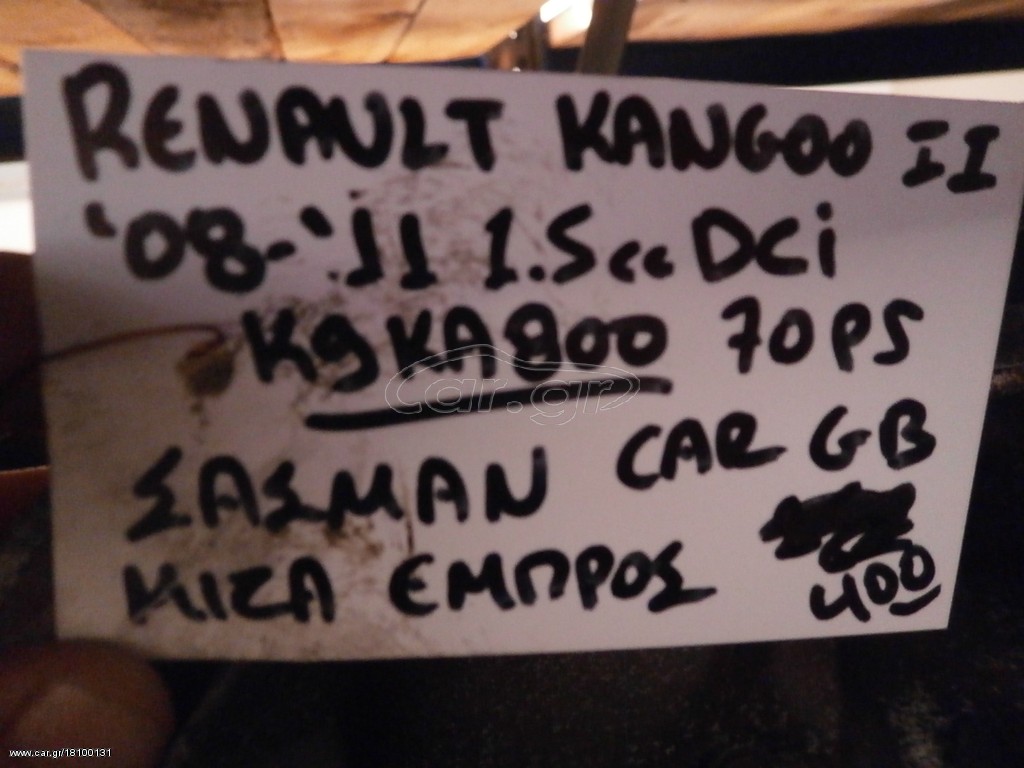 RENAULT KANGOO II
'08-'11 1.5cc DCi
K9KA800 70PS
ΣΑΣΜΑΝ CAR GB
ΜΙΖΑ ΕΜΠΡΟΣ 400
car.gr
www.car.gr/18100131